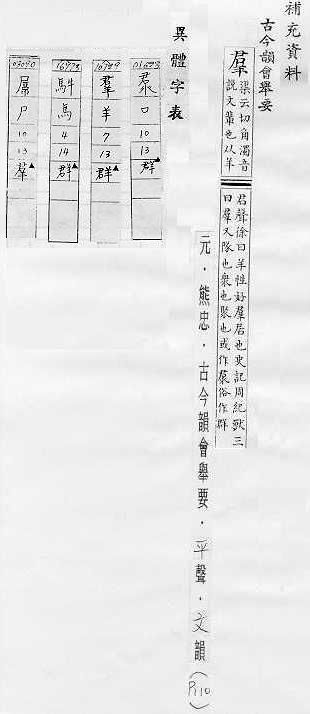 補充資料
古今韻會舉要
羣 渠云切角濁音
說文輩也从羊
君聲徐曰羊性好羣居也史記周紀獸三
曰羣又隊也衆也聚也或作㟒俗作群
元．熊忠．古今韻會舉要．平聲．文韻（P110）
異體字表
01693
口
10
13
群
羣
羊
7
13
群
馬
4
14
群
尸
10
13
羣